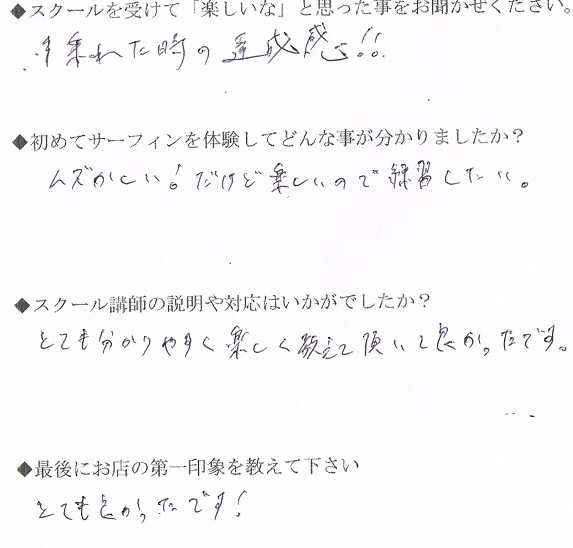 ◆スクールを受けて「楽しいな」と思った事をお聞かせください。
乗れた時の達成感!!
◆初めてサーフィンを体験してどんな事が分かりましたか？
ムズかしい!だけど楽しいので練習したい。
◆スクール講師の説明や対応はいかがでしたか？
とても分かりやすく楽しく教えて頂いて良かったです。
◆最後にお店の第一印象を教えて下さい
とても良かったです!